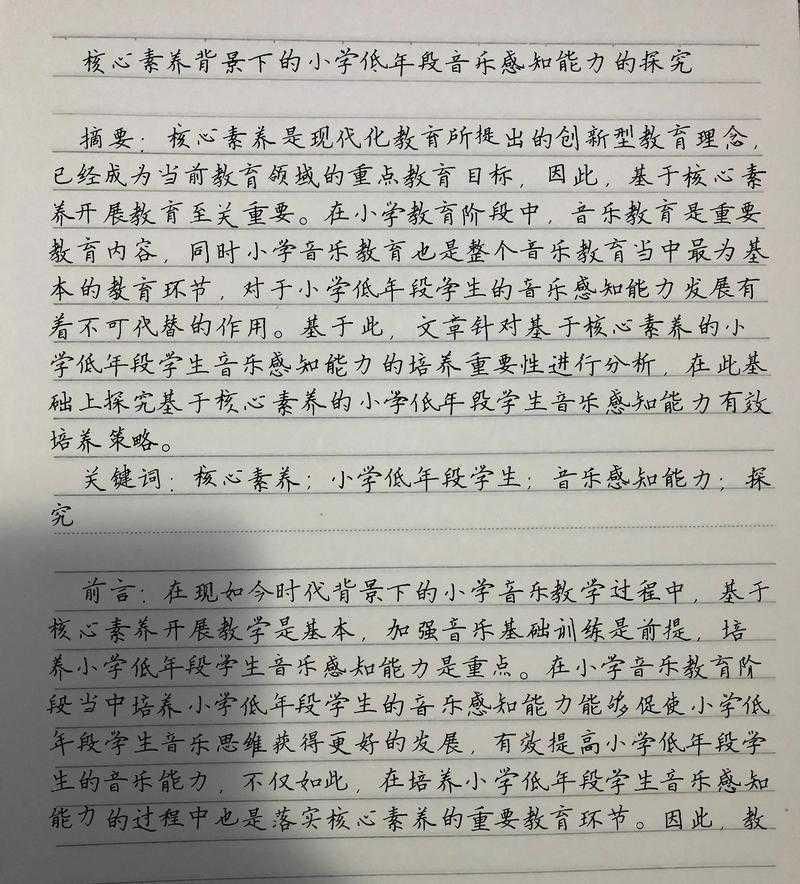 核心素养背景下的小学低年段音乐感知能力的探究
摘要：核心素养是现代化教育所提出的创新型教育理念，
已经成为当前教育领域的重点教育目标，因此，基于核心素
养开展教育至关重要。在小学教育阶段中，音乐教育是重要
教育内容，同时小学音乐教育也是整个音乐教育当中最为基
本的教育环节，对于小学低年段学生的音乐感知能力发展有
着不可代替的作用。基于此，文章针对基于核心素养的小
学低年段学生音乐感知能力的培养重要性进行分析，在此基
础上探究基于核心素养的小学低年段学生音乐感知能力有效
培养策略。
关键词：核心素养；小学低年段学生；音乐感知能力；探
究
前言：在现如今时代背景下的小学音乐教学过程中，基于
核心素养开展教学是基本，加强音乐基础训练是前提，培
养小学低年段学生音乐感知能力是重点。在小学音乐教育阶
段当中培养小学低年段学生的音乐感知能力能够促使小学低
年段学生音乐思维获得更好的发展，有效提高小学低年段学
生的音乐能力，不仅如此，在培养小学低年段学生音乐感知
能力的过程中也是落实核心素养的重要教育环节。因此，教